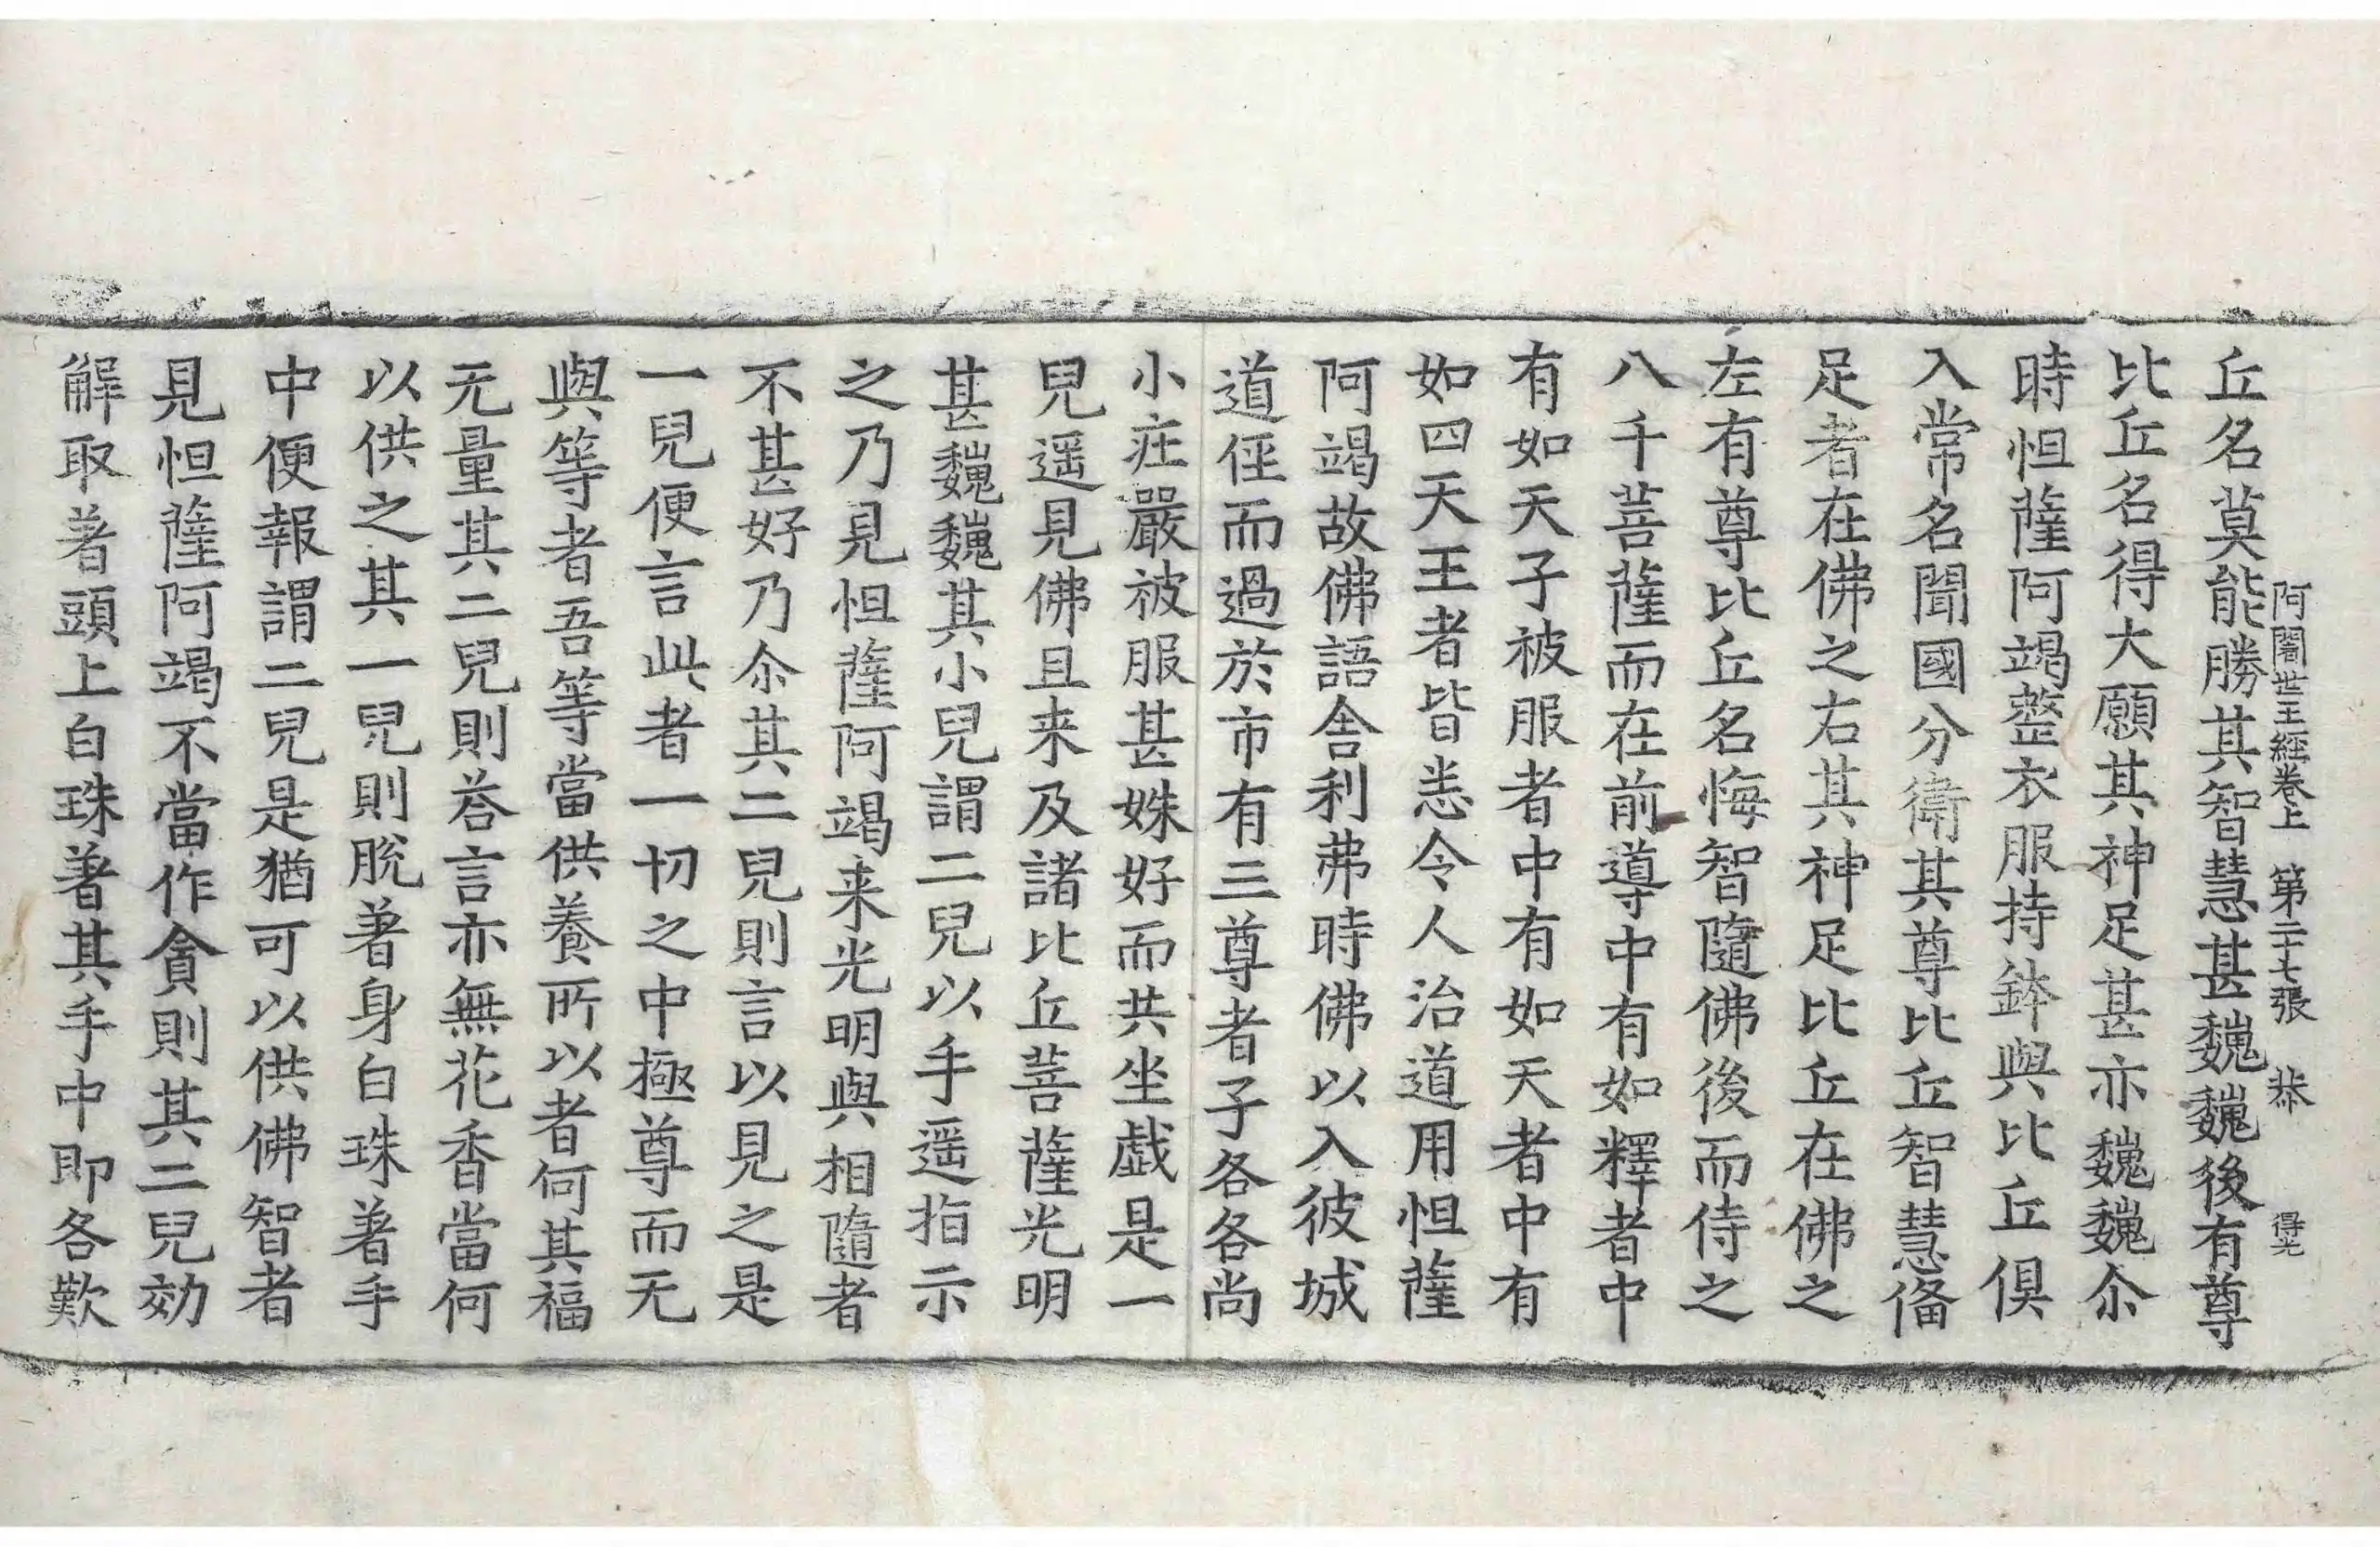 阿闍世王經卷上　第二十七張　恭　得光
丘名莫能勝其智慧甚巍巍後有尊
比丘名得大願其神足甚亦巍巍尒
時怛薩阿竭整衣服持鉢與比丘俱
入常名聞國分衛其尊比丘智慧俻
足者在佛之右其神足比丘在佛之
左有尊比丘名悔智隨佛後而侍之
八千菩薩而在前導中有如釋者中
有如天子被服者中有如天者中有
如四天王者皆恚令人治道用怛薩
阿竭故佛語舍利弗時佛以入彼城
道徑而過於市有三尊者子各各尚
小莊嚴被服甚姝好而共坐戲是一
兒遥見佛且来及諸比丘菩薩光明
甚巍巍其小兒謂二兒以手遥指示
之乃見怛薩阿竭来光明與相隨者
不甚好乃尒其二兒則言以見之是
一兒便言此者一切之中極尊而无
與等者吾等當供養所以者何其福
无量其二兒則荅言亦無花香當何
以供之其一兒則脫著身白珠著手
中便報謂二兒是猶可以供佛智者
見怛薩阿竭不當作貪則其二兒効
解取著頭上白珠著其手中即各歎